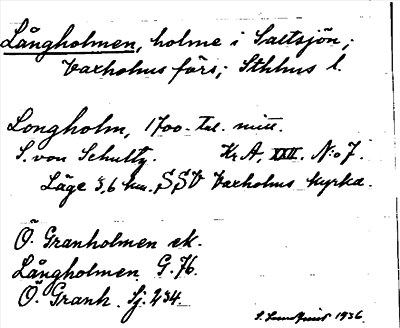 Långholmen, holme i Saltsjön;
Vaxholms förs; Sthlms l.
Longholm, 1700-tal. mitt.
S. von Schultz. Kr A, XXII. N:o 7.
Läge 3,6 km. SSV Vaxholms kyrka.
Ö. Granholmen ek.
Långholmen G. 76.
Ö. Granh. Sj. 234.
1936